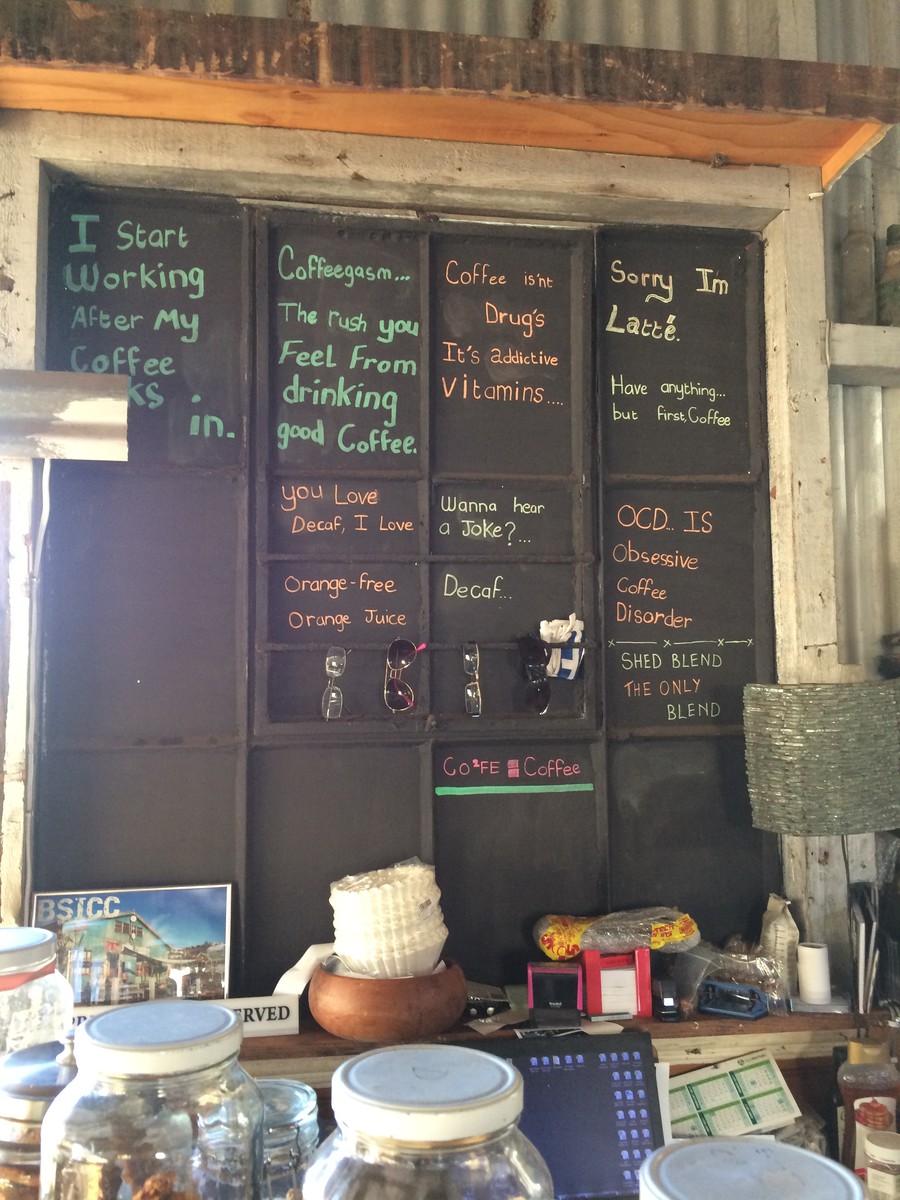 I Start
Working
After My
Coffee
ks
in.
Coffeegasm...
The rush you
Feel From
drinking
good Coffee.
Coffee is'nt
Drug's
It's addictive
Vitamins....
Sorry I'm
Latté.
Have anything...
but first, Coffee
you Love
Decaf, I Love
Orange-free
Orange Juice
Wanna hear
a Joke?...
Decaf...
OCD.. IS
Obsessive
Coffee
Disorder
SHED BLEND
THE ONLY
BLEND
Co²FE = Coffee
BSTCC
ERVED